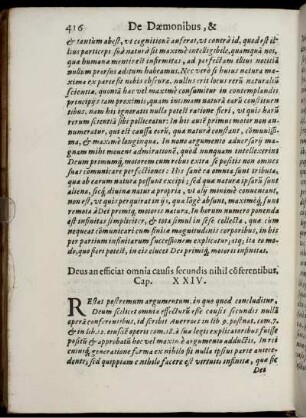 416 De Dæmonibus, &
& tantùm abest, vt cognitionẽ auferat, vt conera id, quod est il-
lius particeps sic à natura sit maxime intelligibile, quamquã nos,
qua humanæ mentis est infirmitas, ad perfectam illius notitiã
nullum prorsus aditum habeamus. Nec verò si huius natura ma-
xima ex parte sit nobis obscura, illicò cum rerũ naturaliũ
scientia, quoniã hac vel maximè consumitur in contemplandis
principijs tam proximis, quàm intimam naturã earũ constituen-
tibus, nam his ignoratis nulla potest ratione fieri, vt quis harũ
rerum scientiã sibi polliceatur: In his autẽ primus motor non an-
numeratur, qui est caussa eorũ, qua naturâ constant, cõmuniss-
ma, & maximè longinqua. In nono argumento aduersarij ma-
gnam mihi mouent admirationẽ, quòd nunquam intellexerint
Deum primumq́; motorem cum rebus extra se positis non omneis
suas cõmunicare perfectiones: His sanè ea omnia sunt tributa,
quæ ab earum natura possunt excipi; sed quæ natura ipsarũ sunt
aliena, sicq́; diuinæ naturæ propria, vt alij minimè conueniant,
non est, vt quis perquirat in ijs, quæ lõgè absunt, maximeq́; sunt
remota à Dei primiq́; motoris natura. In horum numero ponenda
est infinitas simpliciter, & tota simul in sese collecta, quæ cùm
nequeat cõmunicari cum finitæ magnitudinis corporibus, in his
per partium infinitarum successionem explicatur, itq́; ita eo mo-
do, quo fieri potest, in eis elucet infinitas Dei, primiq́; motoris infinitas.
Deus an efficiat omnia causis secundis nihil cõferentibus,
Cap. XXIV.
REstat postremum argumentum, in quo quod concluditur,
Deum scilicet omnia effecturũ esse causis secundis nullã
operã conferentibus, id scribit Auerroes in lib. 9. positnat. com. 7.
& in lib. 12. eiusdẽ operis com. 18. à sua legis explicatoribus fuisse
positũ & approbatũ hac vel maximè argumento adductis, In rei
enimq́; generatione forma ex nihilo fit nulla ipsius parte antece-
dente; sed quippiam è nihilo facere est virtutis infinitæ, quæ sit
Deo